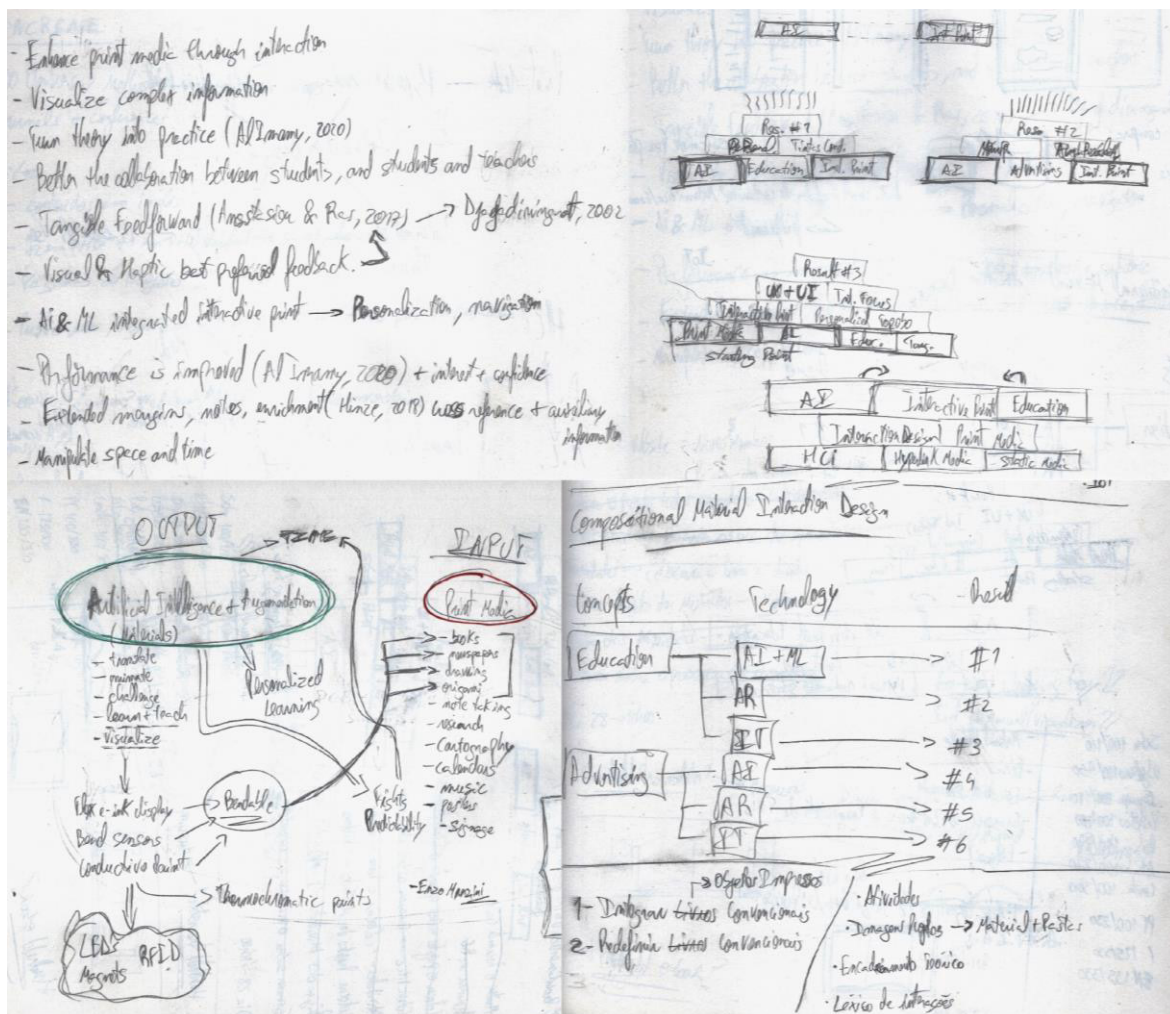 - Enhance print media through interaction
- Visualize complex information
- Turn theory into practice (Al Imamy, 2020)
- Better the collaboration between students, and students and teachers
- Tangible Feedforward (Anastasiou & Ras, 2017) → Djajadiningrat, 2002
- Visual & Haptic best preferred feedback.
- Ai & ML integrated interactive print → Personalization, navigation
- Performance is improved (Al Imamy, 2020) + interest + confidence
- Extended margins, notes, enrichment (Hinze, 2018) cross reference + auxiliary
information
- Manipulate space and time
AI Int. Print
Res. #1
AI Education Int. Print
Res. #2
AI Advertising Int. Print
Result #3
UX + UI Int. Focus
Interactive Print Personalized
Print Media Educ. Tang.
starting Point
AI Interactive Print Education
Interaction Design Print Media
HCI Hypertext Media Static Media
OUTPUT
TIME
Artificial Intelligence + Augmentation
(Materials)
- translate
- animate
- challenge
- learn + teach
- Visualize
Personalized
Learning
Flex e-ink display
Bend sensors
Conductive Paint
Bendable
Thermochromatic paints
LED RFID
Magnets
INPUT
Print Media
- books
- newspapers
- drawing
- origami
- note taking
- research
- Cartography
- calendars
- music
- posters
- signage
Predictability
- Enzo Manzini
IOT
Compositional Material Interaction Design
Concepts - Technology - Result
Education AI + ML → #1
AR → #2
IT → #3
Advertising AI → #4
AR → #5
IT → #6
Objetos Impressos
1- Integrar Livros Convencionais
2- Redefinir Livros Convencionais
• Atividades
→ Material + Pastas
• Encadeamento Teórico
• Léxico de interações